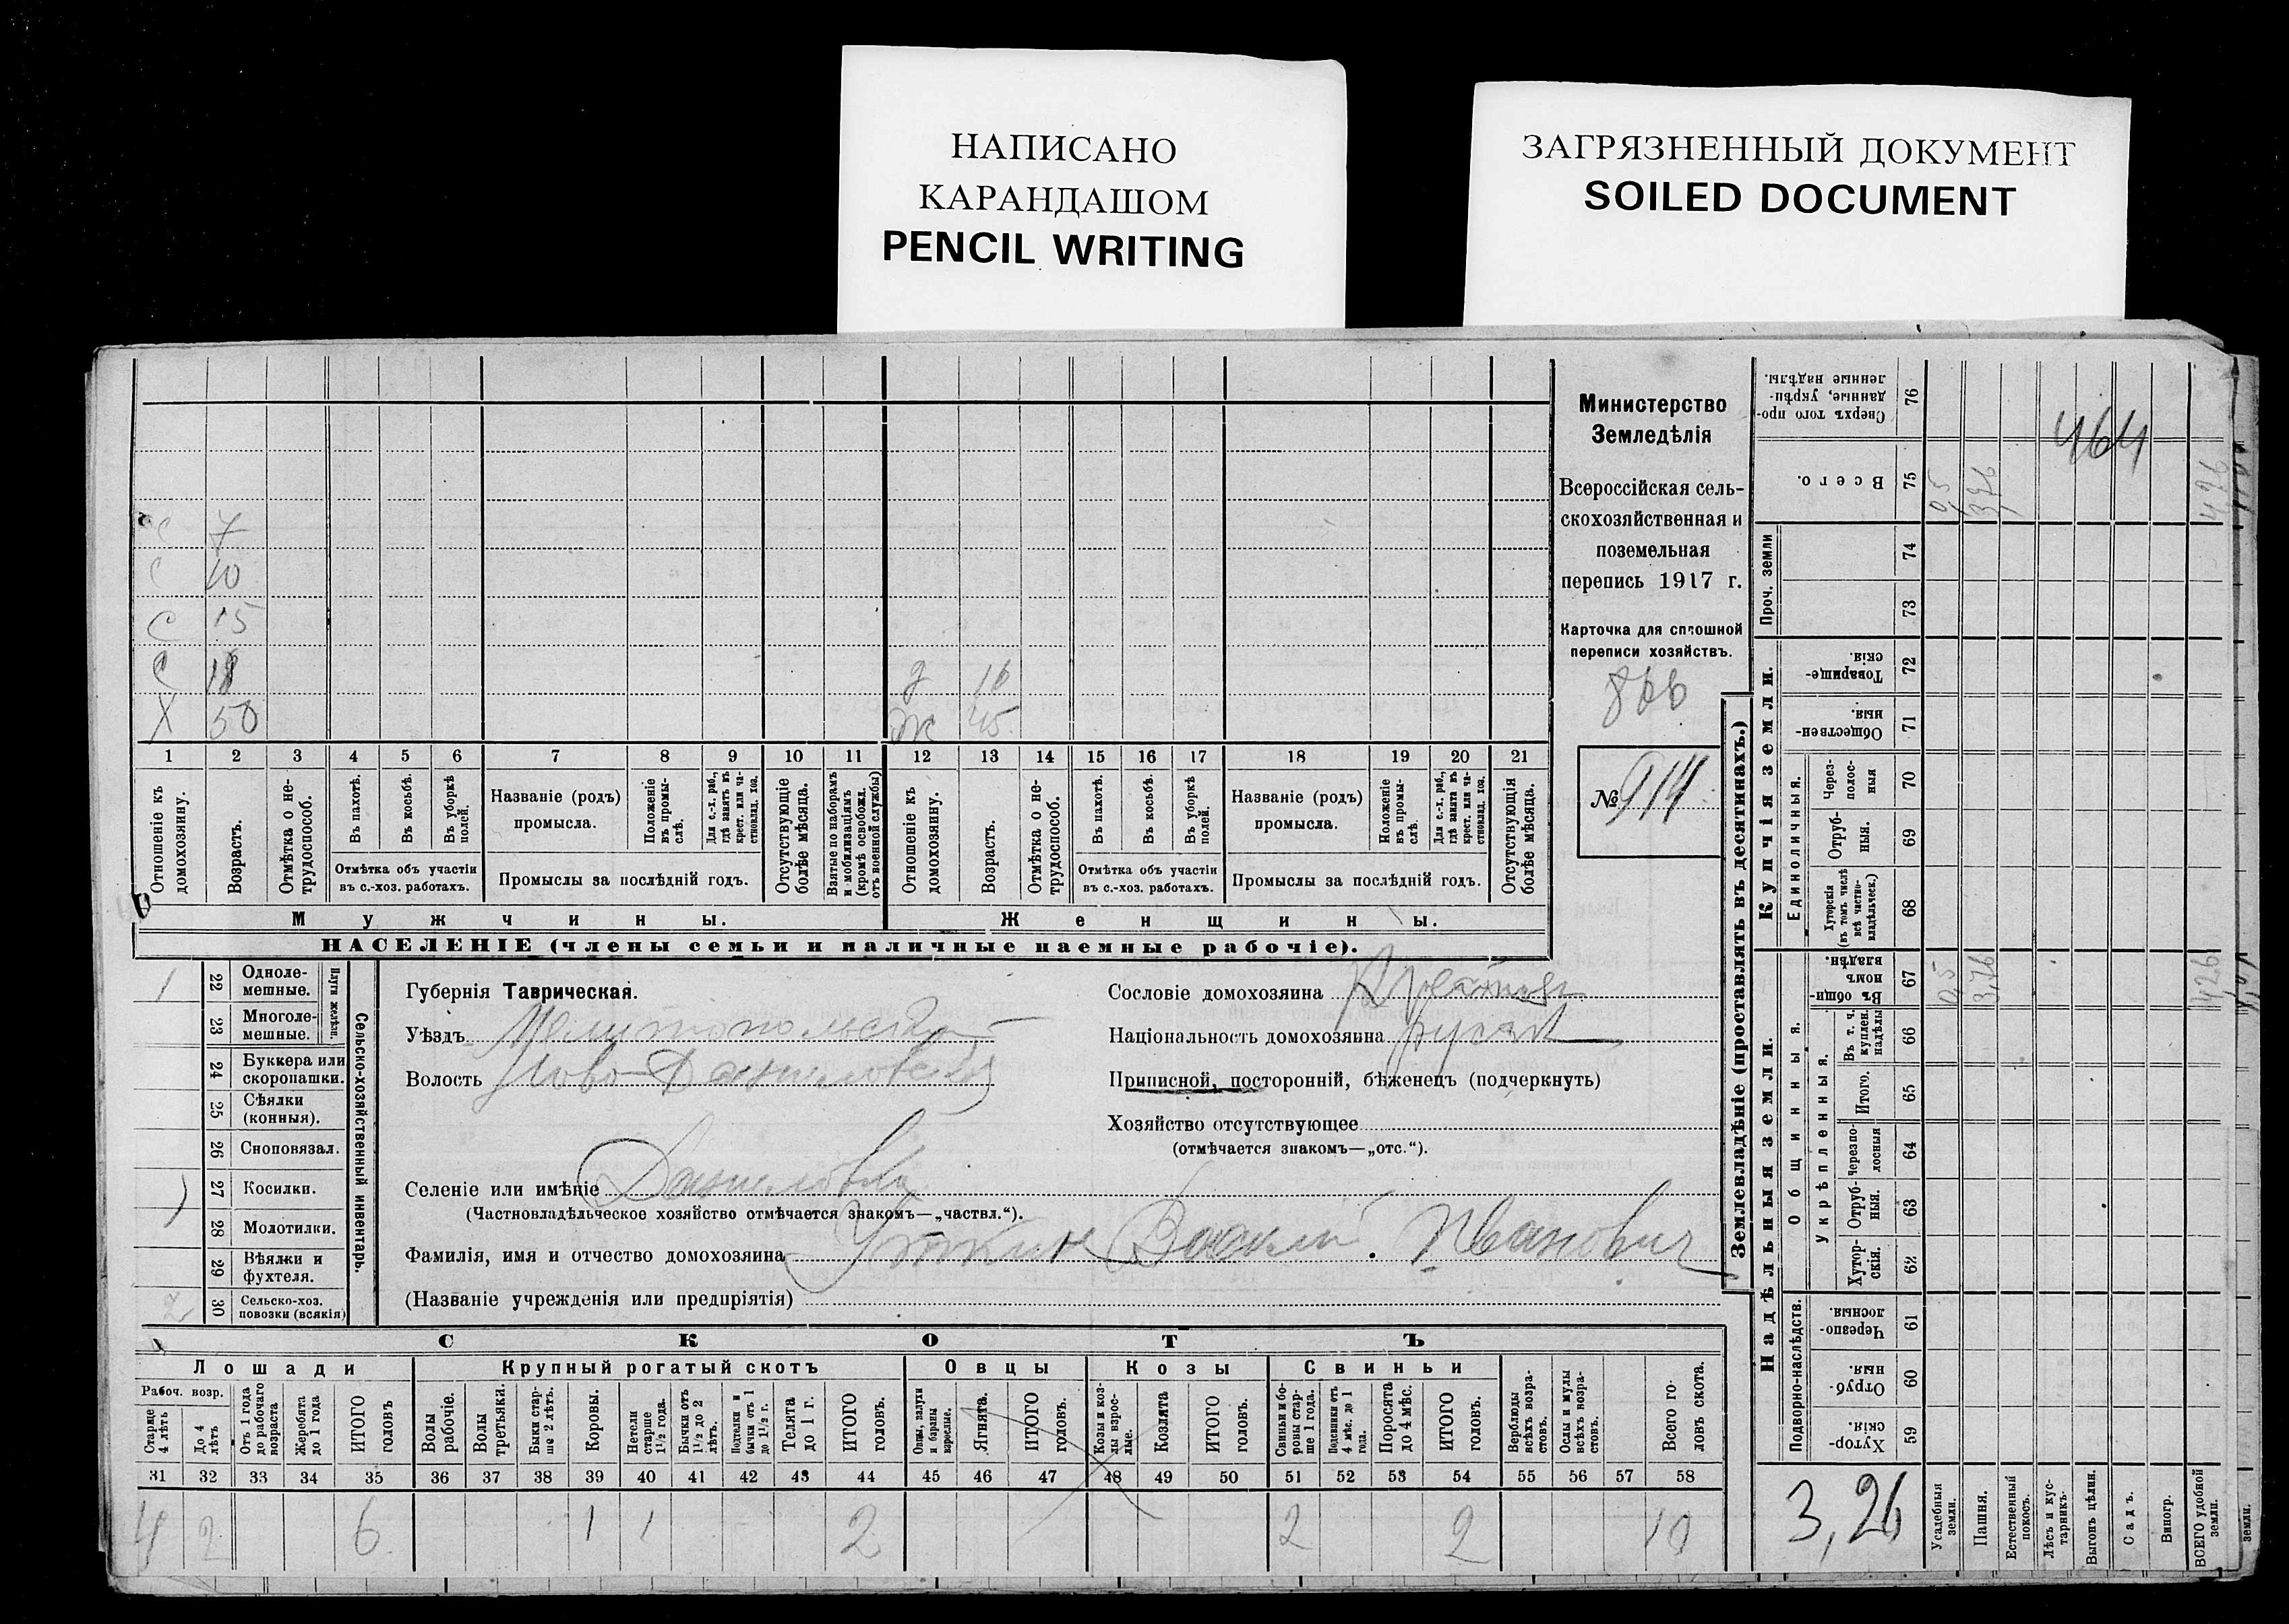 НАПИСАНО
КАРАНДАШОМ
PENCIL WRITING
ЗАГРЯЗНЕННЫЙ ДОКУМЕНТ
SOILED DOCUMENT
Министерство
Земледѣлія
Всероссійская сель-
скохозяйственная и
поземельная
перепись 1917 г.
Карточка для сплошной
переписи хозяйствъ.
№ 914
С 7
С 10
С 15
С 18
Х 50
Ж 45
1 2 3 4 5 6 7 8 9 10 11 12 13 14 15 16 17 18 19 20 21
Отношеніе къ домохозяину.
Возрастъ.
Отмѣтка о не-трудоспособ.
Въ пахотѣ.
Въ косьбѣ.
Въ уборкѣ полей.
Отмѣтка объ участіи въ с.-хоз. работахъ.
Названіе (родъ) промысла.
Положеніе въ промы-слѣ.
Для с.-х. раб., гдѣ занятъ въ крест. или ча-стновлад. хоз.
Промыслы за послѣдній годъ.
Отсутствующіе болѣе мѣсяца.
Взятые по наборамъ и мобилизаціямъ (кромѣ освобожд. отъ военной службы)
Отношеніе къ домохозяину.
Возрастъ.
Отмѣтка о не-трудоспособ.
Въ пахотѣ.
Въ косьбѣ.
Въ уборкѣ полей.
Отмѣтка объ участіи въ с.-хоз. работахъ.
Названіе (родъ) промысла.
Положеніе въ промы-слѣ.
Для с.-х. раб., гдѣ занята въ крест. или ча-стновлад. хоз.
Промыслы за послѣдній годъ.
Отсутствующія болѣе мѣсяца.
Мужчины.
Женщины.
НАСЕЛЕНІЕ (члены семьи и наличные наемные рабочіе).
1 22 Одноле-мешные.
23 Многоле-мешные.
Плуги желѣзн.
24 Буккера или скоропашки.
25 Сѣялки (конныя).
26 Сноповязал.
27 Косилки.
28 Молотилки.
29 Вѣялки и фухтеля.
2 30 Сельско-хоз. повозки (всякія)
Сельско-хозяйственный инвентарь.
Губернія Таврическая.
Уѣздъ Мелитопольскій
Волость Ново-Даниловская
Селеніе или имѣніе Даниловка
(Частновладѣльческое хозяйство отмѣчается знакомъ—„частвл.“).
Фамилія, имя и отчество домохозяина Уткин Василій Иванович
(Названіе учрежденія или предпріятія)
Сословіе домохозяина
Національность домохозяина русск
Приписной, посторонній, бѣженецъ (подчеркнуть)
Хозяйство отсутствующее
(отмѣчается знакомъ—„отс.“).
СКОТЪ
Лошади
Крупный рогатый скотъ
Овцы
Козы
Свиньи
Рабоч. возр.
Старше 4 лѣтъ
До 4 лѣтъ
Отъ 1 года до рабочаго возраста
Жеребята до 1 года
ИТОГО головъ
Волы рабочіе.
Волы третьяки.
Быки стар-ше 2 лѣтъ.
Коровы.
Нетели старше 1½ года.
Бычки отъ 1½ до 2 лѣтъ.
Подтелки и бычки отъ 1 до 1½ г.
Телята до 1 г.
ИТОГО головъ.
Овцы, валухи и бараны взрослые.
Ягнята.
ИТОГО головъ.
Козы и коз-лы взрос-лые.
Козлята
ИТОГО головъ.
Свиньи и бо-ровы стар-ше 1 года.
Подсвинки отъ 4 мѣс. до 1 года.
Поросята до 4 мѣс.
ИТОГО головъ.
Верблюды всѣхъ возра-стовъ.
Ослы и мулы всѣхъ возра-стовъ.
Всего го-ловъ скота.
31 32 33 34 35 36 37 38 39 40 41 42 43 44 45 46 47 48 49 50 51 52 53 54 55 56 57 58
4 2 6 1 1 2 2 2 10
Землевладѣніе (проставлять въ десятинахъ.)
Надѣльныя земли.
Купчія земли.
Проч. земли
Подворно-наслѣдств.
Общинныя.
Укрѣпленныя.
Единоличныя.
Сверхъ того про-данные, укрѣп-ленные надѣлы. 76
Всего. 75
74
73
Товарище-скія. 72
Обществен-ныя. 71
Через-полос-ныя 70
Отруб-ныя. 69
Хуторскія (въ томъ числѣ всѣ частно-владѣльческ.) 68
Въ общин-номъ владѣн. 67
Въ т. ч. куплен. надѣлы 66
Итого. 65
Черезпо-лосныя 64
Отруб-ныя. 63
Хутор-скія. 62
Черезпо-лосныя 61
Отруб-ныя. 60
Хутор-скія. 59
464
3,26
Усадебныя земли.
Пашня.
Естественный покосъ.
Лѣсъ и кус-тарникъ.
Выгонъ цѣлин.
Садъ.
Виногр.
ВСЕГО удобной земли.
земли.
0,5 3,76 426
0,5 3,76 426